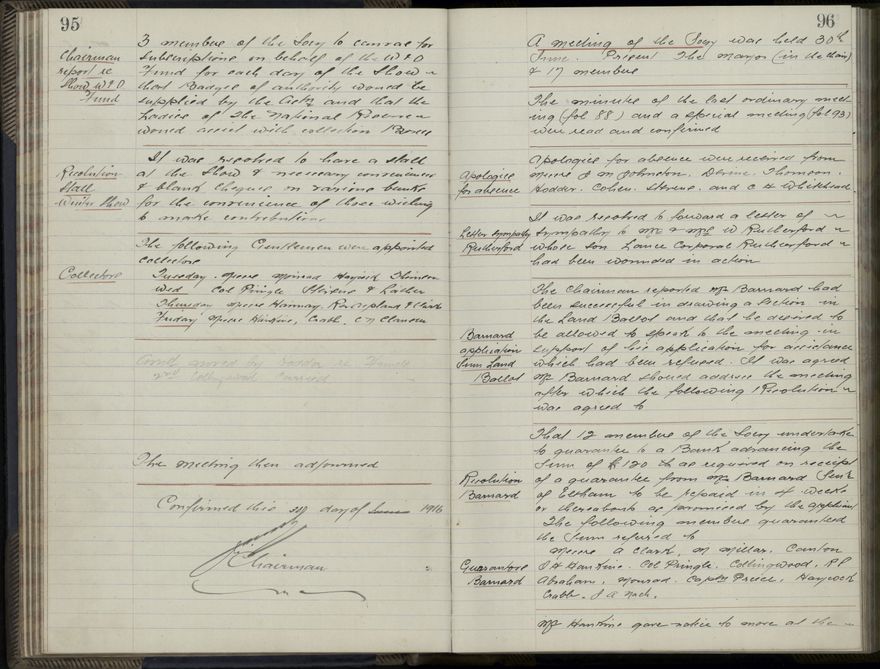 95
3 members of the Socy to canvas for
Chairman
report re
Show W & D
Fund
Subscriptions on behalf of the W & D
Fund for each day of the Show
that Badges of authority would be
supplied by the and that the
Ladies of the National Reserve
would assist with collection Boxes
Resolution
Stall
Winter Show
It was resolved to have a stall
at the Show & necessary conveniences
& blank cheques on various banks
for the convenience of those wishing
to make contributions
The following Gentlemen were appointed
collectors
Collectors
Tuesday Messrs Haycock
Wed Col Pringle &
Thursday Messrs Hannay &
Friday Messrs Hankins, Crabb,
2nd Collingwood Carried
The meeting then adjourned
Confirmed this day of 1916
Chairman
96
A meeting of the Socy was held 30th
June. Present The Mayor (in the chair)
& 17 members
The minutes of the last ordinary meet
ing (fol 88) and a special meeting (fol 93)
were read and confirmed
Apologies
for absence
Apologies for absence were received from
Messrs J M Johnston, Thomson,
Hodder, Cohen, Stevens, and C H Whitehead.
Letter sympathy
Rutherford
It was resolved to forward a letter of
Sympathy to Mr & Mrs W Rutherford
whose son Lance Corporal Rutherford
had been wounded in action
Barnard
application
Land
Ballot
The Chairman reported Mr Barnard had
been successful in drawing a Section in
the Land Ballot and that he desired to
be allowed to speak to the meeting in
support of his application for assistance
which had been refused. It was agreed
Mr Barnard should address the meeting
after which the following Resolution
was agreed to
Resolution
Barnard
That 12 members of the Socy undertake
to guarantee to a Bank advancing the
Sum of £120 as required on receipt
of a guarantee from Mr Barnard Senr
of Eltham to be repaid in 4 weeks
or thereabouts as promised by the applicant
The following members guaranteed
the Sum referred to
Guarantors
Barnard
Messrs A Clark, M Millar, Canton
J H Hankins, Col Pringle, Collingwood, R P
Abraham, Mowad, Captn Preece, Haycock
Crabb, J A Nash.
Mr Hankins gave notice to move at the